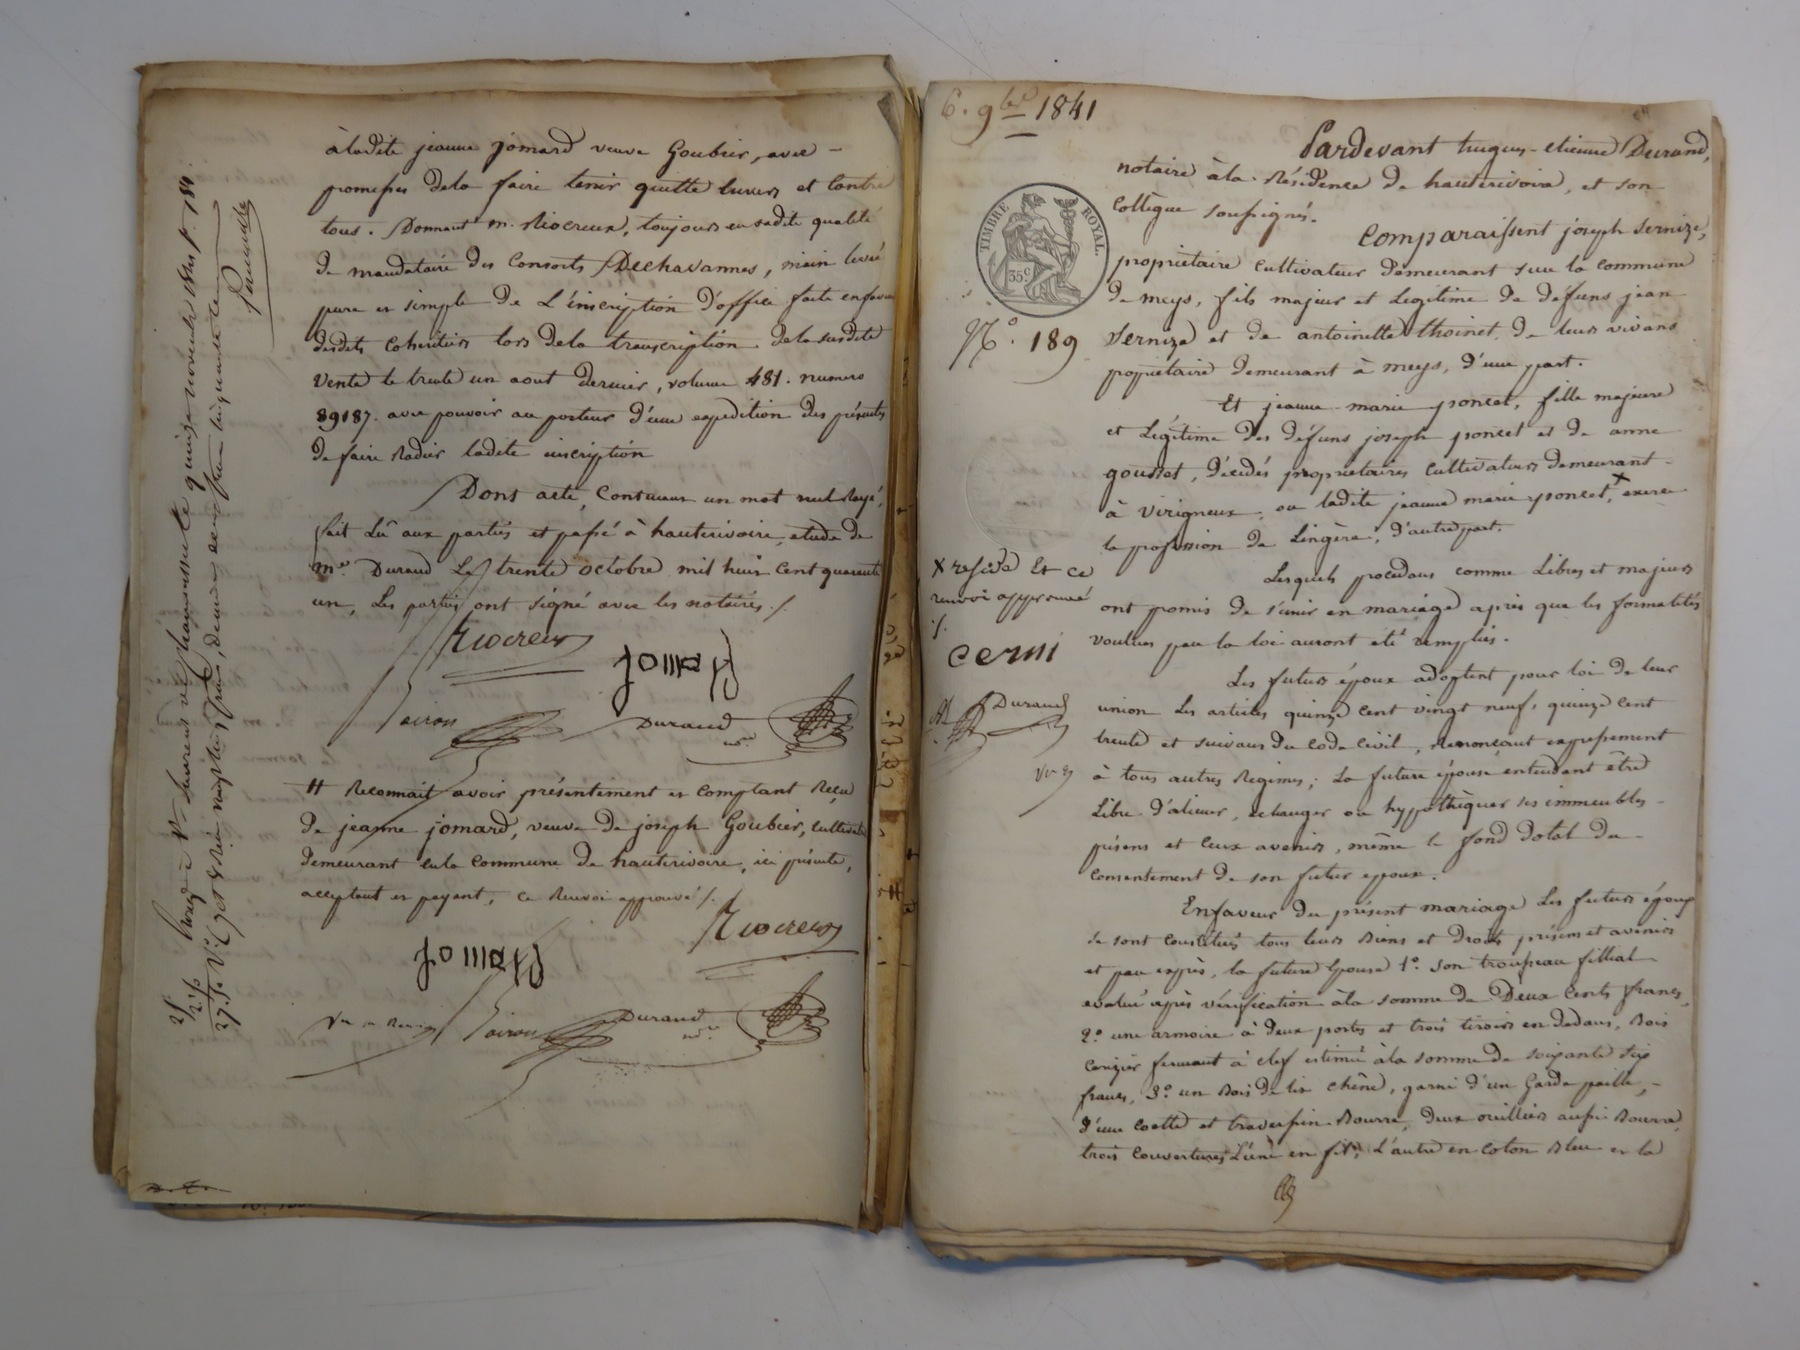 à ladite jeanne jomard veuve Goubier, avec -
promesses de la faire tenir quitte envers et contre
tous. Donnant m. Riocreux, toujours en sadite qualité
de mandataire des Consorts Dechavannes, main levée
pure et simple de L'inscription d'office faite en faveur
desdits cohéritiers lors de la transcription de la susdite
vente le trente un aout dernier, volume 481. numero
89187. avec pouvoir au porteur d'une expedition des présentes
de faire Radier ladite inscription
Dont acte, contenant un mot nul Rayé,
fait Lû aux parties et passé à hauterivoire, etude de
me. Durand Le trente octobre mil huit cent quarante
un, Les parties ont signé avec les notaires ./.
Riocreux
Jomard
Durand
# Reconnait avoir présentement et comptant Reçu
de jeanne jomard, veuve de joseph Goubier, cultivateur
demeurant en la commune de hauterivoire, ici présente,
acceptant et payant, ce Renvoi approuvé ./.
Riocreux
Jomard
Durand
6. 9bre 1841
Pardevant hugues-etienne Durand,
notaire à la Résidence de hauterivoire, et son
collègue soussigné.
TIMBRE ROYAL
35c
N°. 189
Comparaissent joseph Sernize,
propriétaire cultivateur demeurant sur la commune
de meys, fils majeur et Legitime de défuns jean
Serniza et de antoinette thoinet, de leurs vivans
propriétaire demeurant à meys, d'une part.
Et jeanne-marie poncet, fille majeure
et Légitime des défuns joseph poncet et de anne
gousset, décédés propriétaires cultivateurs demeurant -
à virigneux, ou ladite jeanne marie poncet, x exerce
la profession de Lingère, d'autre part.
x reside Et ce
renvoi approuvé
./.
cerni
Durand
Lesquels procedans comme Libres et majeurs
ont promis de s'unir en mariage après que les formalités
voulues par la loi auront été remplies.
Les futurs époux adoptent pour loi de leur
union Les articles quinze cent vingt neuf, quinze cent
trente et suivans du code civil, Renonçant expressement
à tous autres Regimes; La future épouse entendant être
Libre d'aliener, echanger ou hyppothèquer ses immeubles -
présens et ceux avenirs, même le fond dotal du -
consentement de son futur epoux.
En faveur du présent mariage Les futurs époux
se sont constitués tous leurs Biens et Droits présens et avenirs
et par exprès, la future Epouse 1°. son trousseau fillial
evalué après vérification à la somme de Deux Cents francs,
2°. une armoire à deux portes et trois tiroirs en dedans, Bois
cerizier fermant à clef estimée à la somme de soixante six
francs, 3°. un Bois de lit chêne, garni d'un Garde paille, -
d'une coette et traversin Bourre, deux oreillers aussi Bourre,
trois couvertures L'une en fil, L'autre en coton Bleu et la